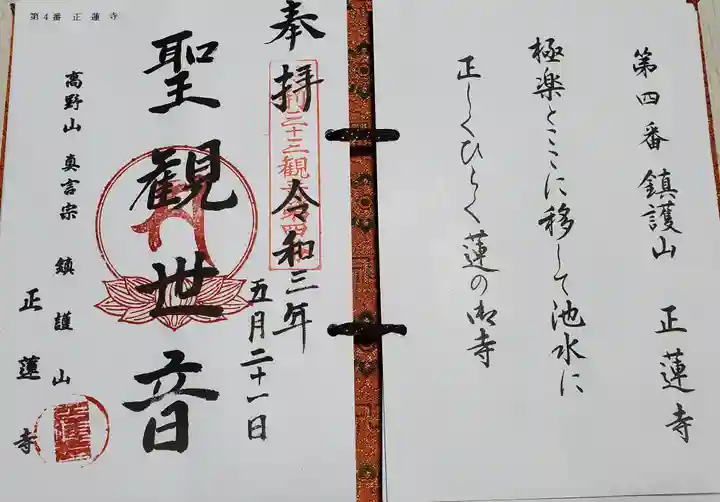 第四番 鎮護山 正蓮寺
極楽とこゝに移して池水に
正しくひらく蓮の御寺
奉拝 令和三年
五月二十一日
聖観世音
高野山 真言宗 鎮護山
正蓮寺
第4番 正蓮寺